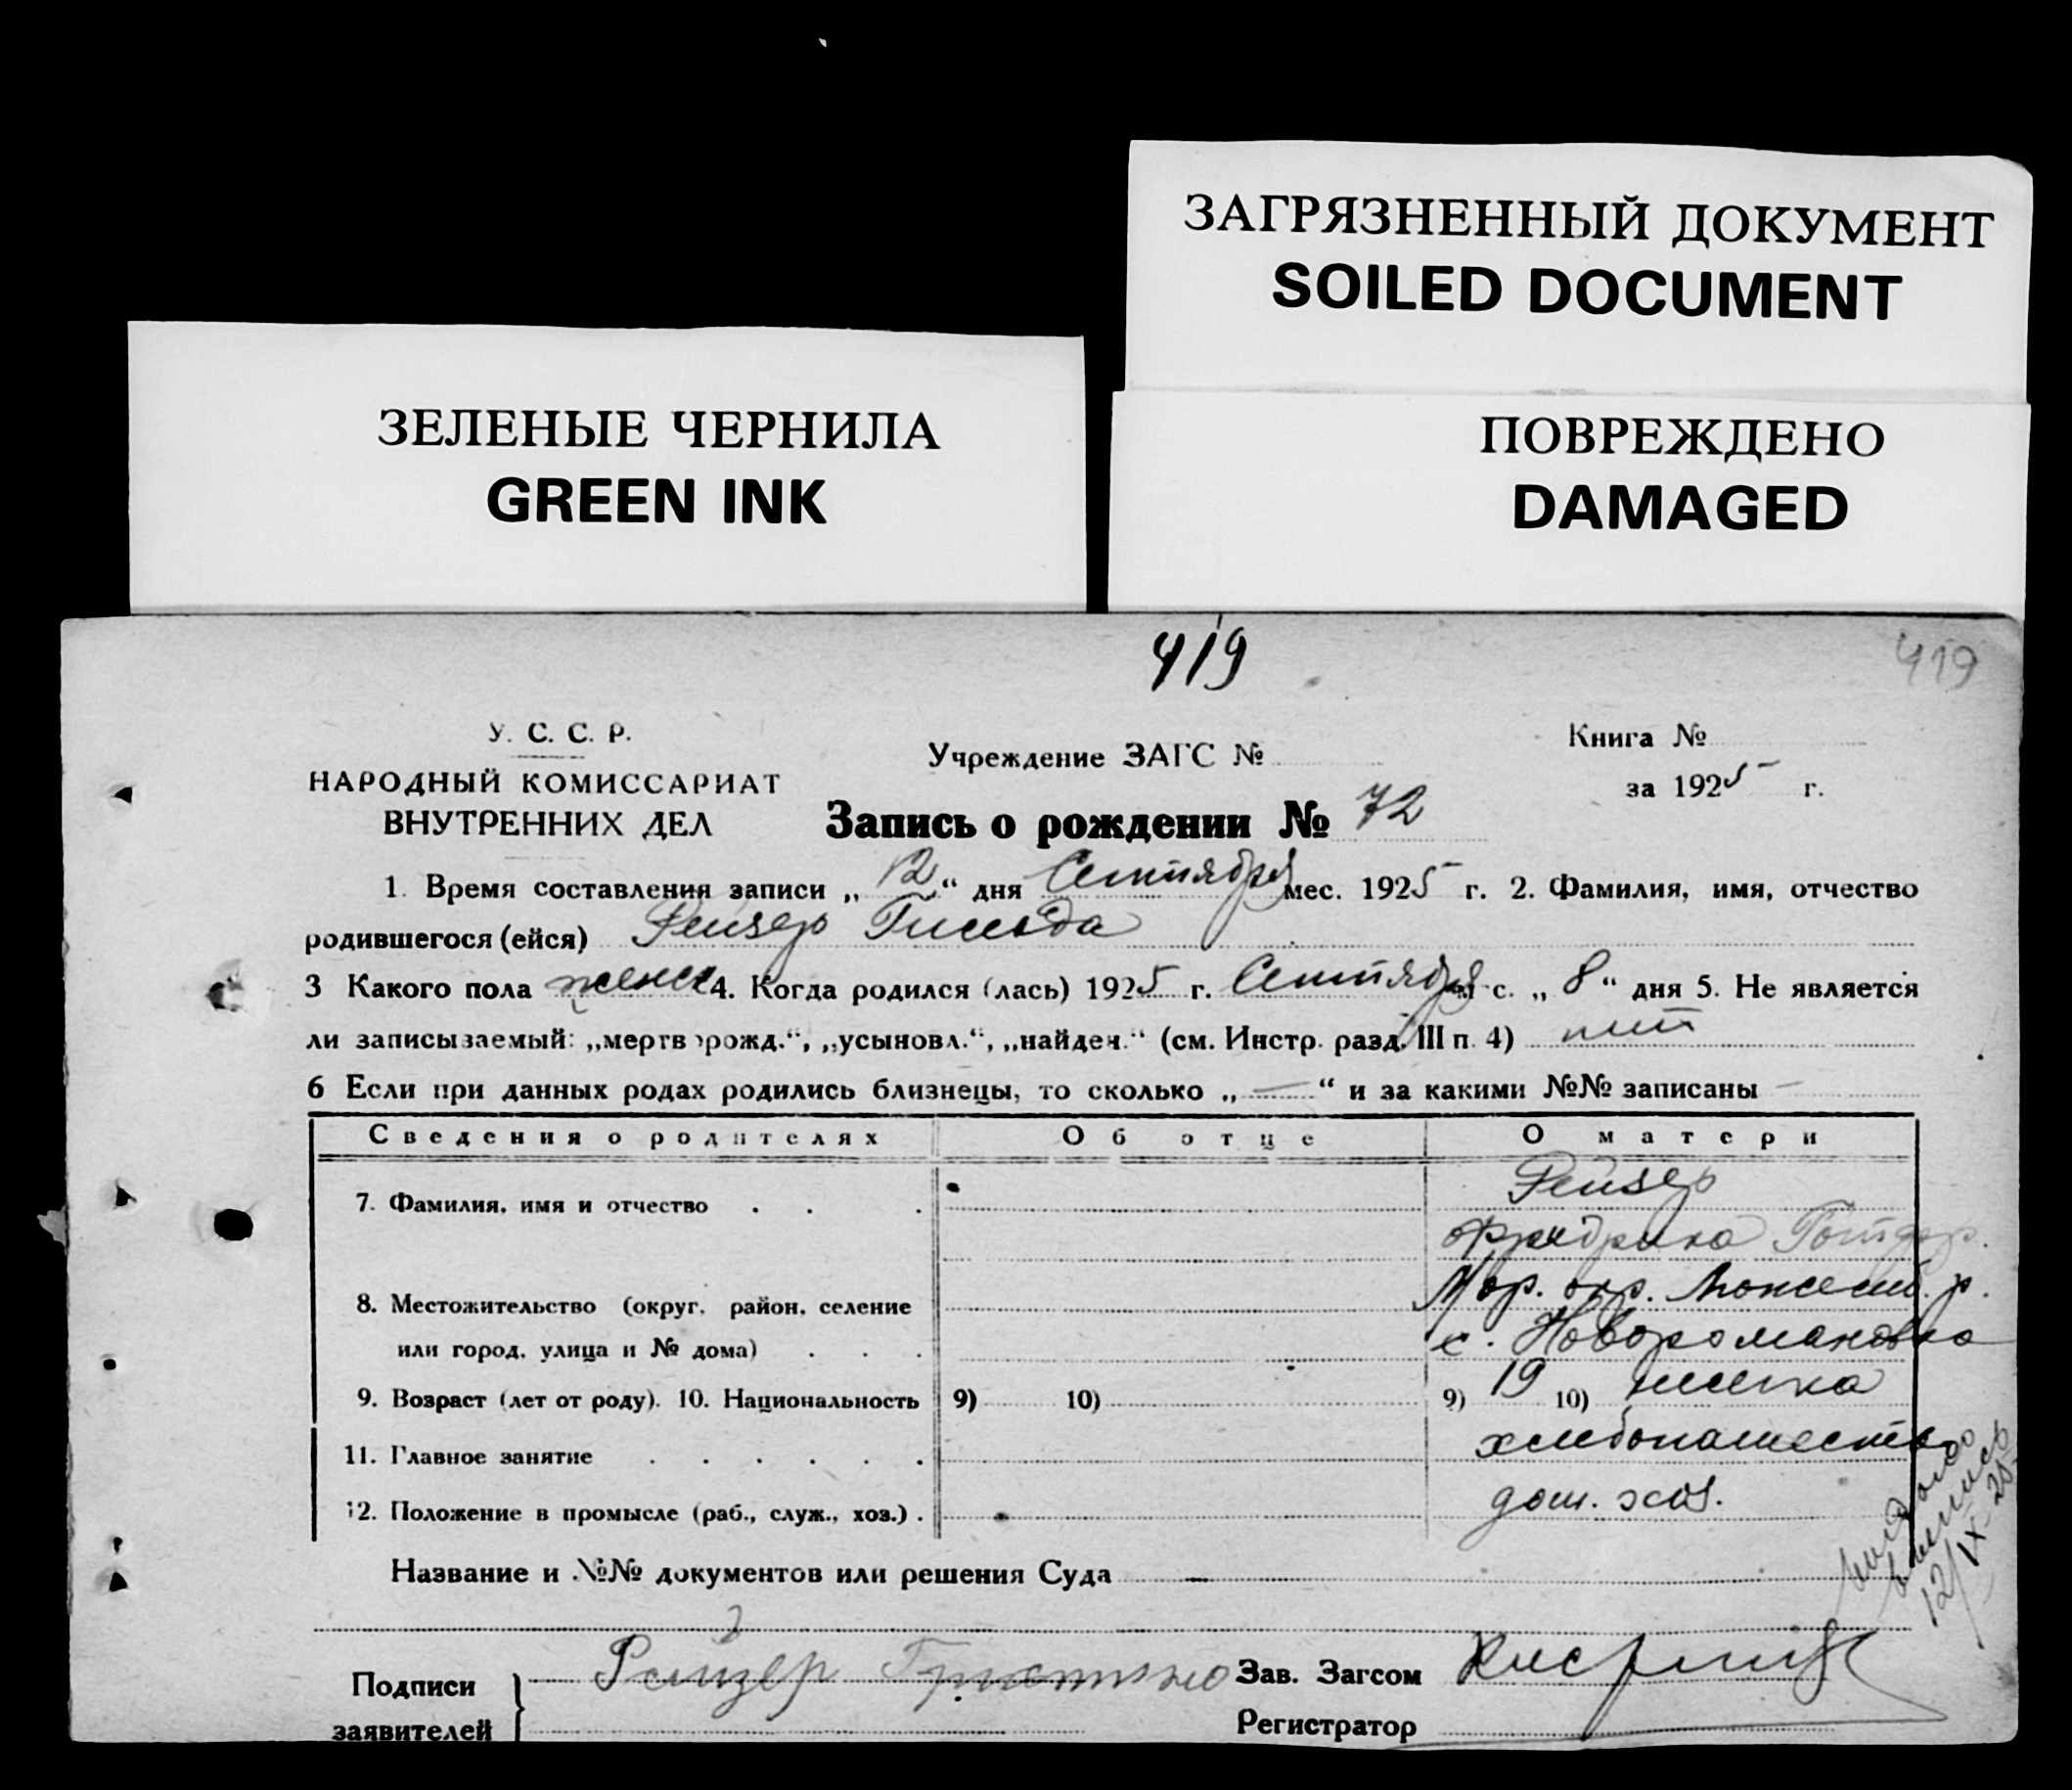 ЗАГРЯЗНЕННЫЙ ДОКУМЕНТ
SOILED DOCUMENT
ЗЕЛЕНЫЕ ЧЕРНИЛА
GREEN INK
ПОВРЕЖДЕНО
DAMAGED
419
419
У. С. С. Р.
НАРОДНЫЙ КОМИССАРИАТ
ВНУТРЕННИХ ДЕЛ
Учреждение ЗАГС №
Книга №
за 1925 г.
Запись о рождении № 72
1. Время составления записи „ 12 “ дня Сентября мес. 1925 г. 2. Фамилия, имя, отчество
родившегося (ейся) Рейзер
3 Какого пола женск 4. Когда родился (лась) 1925 г. Сентября с. „ 8 “ дня 5. Не является
ли записываемый: „мертворожд.“, „усыновл.“, „найден.“ (см. Инстр. разд. III п. 4) нет
6 Если при данных родах родились близнецы, то сколько „ — “ и за какими №№ записаны —
Сведения о родителях Об отце О матери
7. Фамилия, имя и отчество . . . Рейзер
Фридрика
8. Местожительство (округ, район, селение р.
или город, улица и № дома) . . . с. Новоромановка
9. Возраст (лет от роду). 10. Национальность 9) 10) 9) 19 10) немка
11. Главное занятие . . . . . . хлебопашество
12. Положение в промысле (раб., служ., хоз.) . дом. хоз.
Название и №№ документов или решения Суда —
12/IX 25
Подписи
заявителей
Рейзер
Зав. Загсом
Регистратор